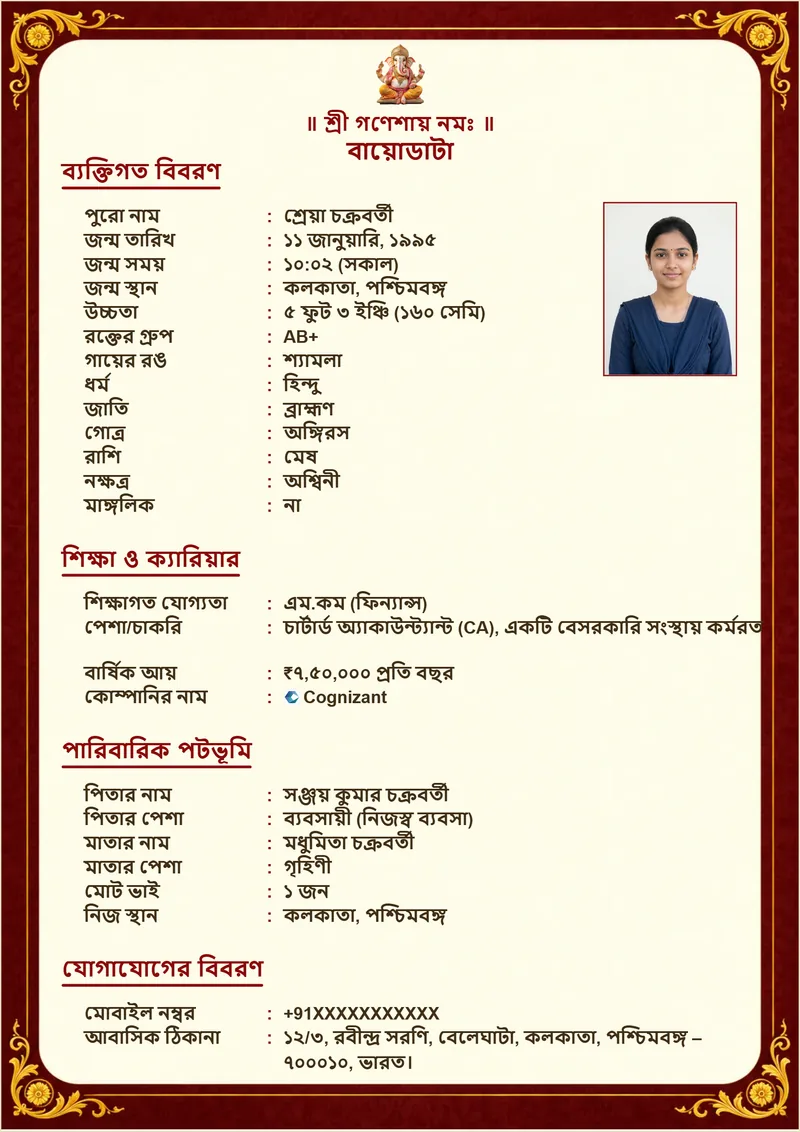 ॥ শ্রী গণেশায় নমঃ ॥
বায়োডাটা
ব্যক্তিগত বিবরণ
পুরো নাম : শ্রেয়া চক্রবর্তী
জন্ম তারিখ : ১১ জানুয়ারি, ১৯৯৫
জন্ম সময় : ১০:০২ (সকাল)
জন্ম স্থান : কলকাতা, পশ্চিমবঙ্গ
উচ্চতা : ৫ ফুট ৩ ইঞ্চি (১৬০ সেমি)
রক্তের গ্রুপ : AB+
গায়ের রঙ : শ্যামলা
ধর্ম : হিন্দু
জাতি : ব্রাহ্মণ
গোত্র : অঙ্গিরস
রাশি : মেষ
নক্ষত্র : অশ্বিনী
মাঙ্গলিক : না
শিক্ষা ও ক্যারিয়ার
শিক্ষাগত যোগ্যতা : এম.কম (ফিন্যান্স)
পেশা/চাকরি : চার্টার্ড অ্যাকাউন্ট্যান্ট (CA), একটি বেসরকারি সংস্থায় কর্মরত
বার্ষিক আয় : ₹৭,৫০,০০০ প্রতি বছর
কোম্পানির নাম : Cognizant
পারিবারিক পটভূমি
পিতার নাম : সঞ্জয় কুমার চক্রবর্তী
পিতার পেশা : ব্যবসায়ী (নিজস্ব ব্যবসা)
মাতার নাম : মধুমিতা চক্রবর্তী
মাতার পেশা : গৃহিণী
মোট ভাই : ১ জন
নিজ স্থান : কলকাতা, পশ্চিমবঙ্গ
যোগাযোগের বিবরণ
মোবাইল নম্বর : +91XXXXXXXXXXX
আবাসিক ঠিকানা : ১২/৩, রবীন্দ্র সরণি, বেলেঘাটা, কলকাতা, পশ্চিমবঙ্গ –
৭০০০১০, ভারত।